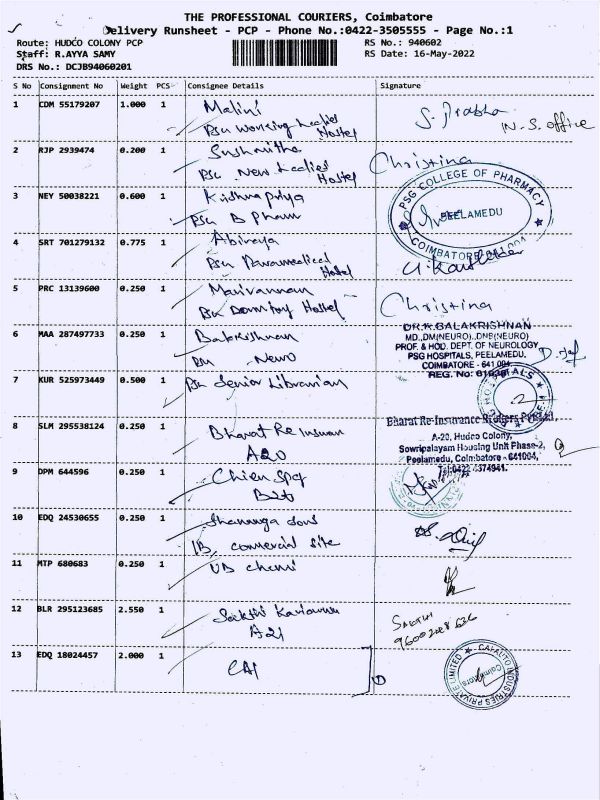 THE PROFESSIONAL COURIERS, Coimbatore
Delivery Runsheet - PCP - Phone No.:0422-3505555 - Page No.:1
Route: HUDCO COLONY PCP
RS No.: 940602
Staff: R.AYYA SAMY
RS Date: 16-May-2022
DRS No.: DCJB94060201
S No Consignment No Weight PCS Consignee Details Signature
1 CDM 55179207 1.000 1 Malini
Working Ladies Hostel
S. Prabha N.S. office
2 RJP 2939474 0.200 1 Sushmitha
New Ladies Hostel
Christina
3 NEY 50038221 0.600 1 Krishnapriya
B Pharm
PSG COLLEGE OF PHARMACY
PEELAMEDU
COIMBATORE
4 SRT 701279132 0.775 1 Abinaya
Paramedical Hostel
5 PRC 13139600 0.250 1 Marivannan
Dormitory Hostel
Christina
6 MAA 287497733 0.250 1 Balakrishnan
Neuro
DR.K.BALAKRISHNAN
MD.,DM(NEURO).,DNB(NEURO)
PROF. & HOD. DEPT. OF NEUROLOGY
PSG HOSPITALS, PEELAMEDU,
COIMBATORE - 641 004.
REG. No:
7 KUR 525973449 0.500 1 Senior Librarian
HOSPITALS
8 SLM 295538124 0.250 1 Bharat Re Insuran
A20
Bharat Re-Insurance Brokers Pvt.Ltd.
A-20, Hudco Colony,
Sowripalayam Housing Unit Phase-2,
Peelamedu, Coimbatore - 641004,
Tel:0422 4374941.
9 DPM 644596 0.250 1
B26
10 EDQ 24530655 0.250 1 Shanmuga Sons
1B, commercial site
11 MTP 680683 0.250 1 UB chemi
12 BLR 295123685 2.550 1
A21
SAKTHI
13 EDQ 18024457 2.000 1 CAI
CAPAUTO INDUSTRIES PRIVATE LIMITED
Coimbatore